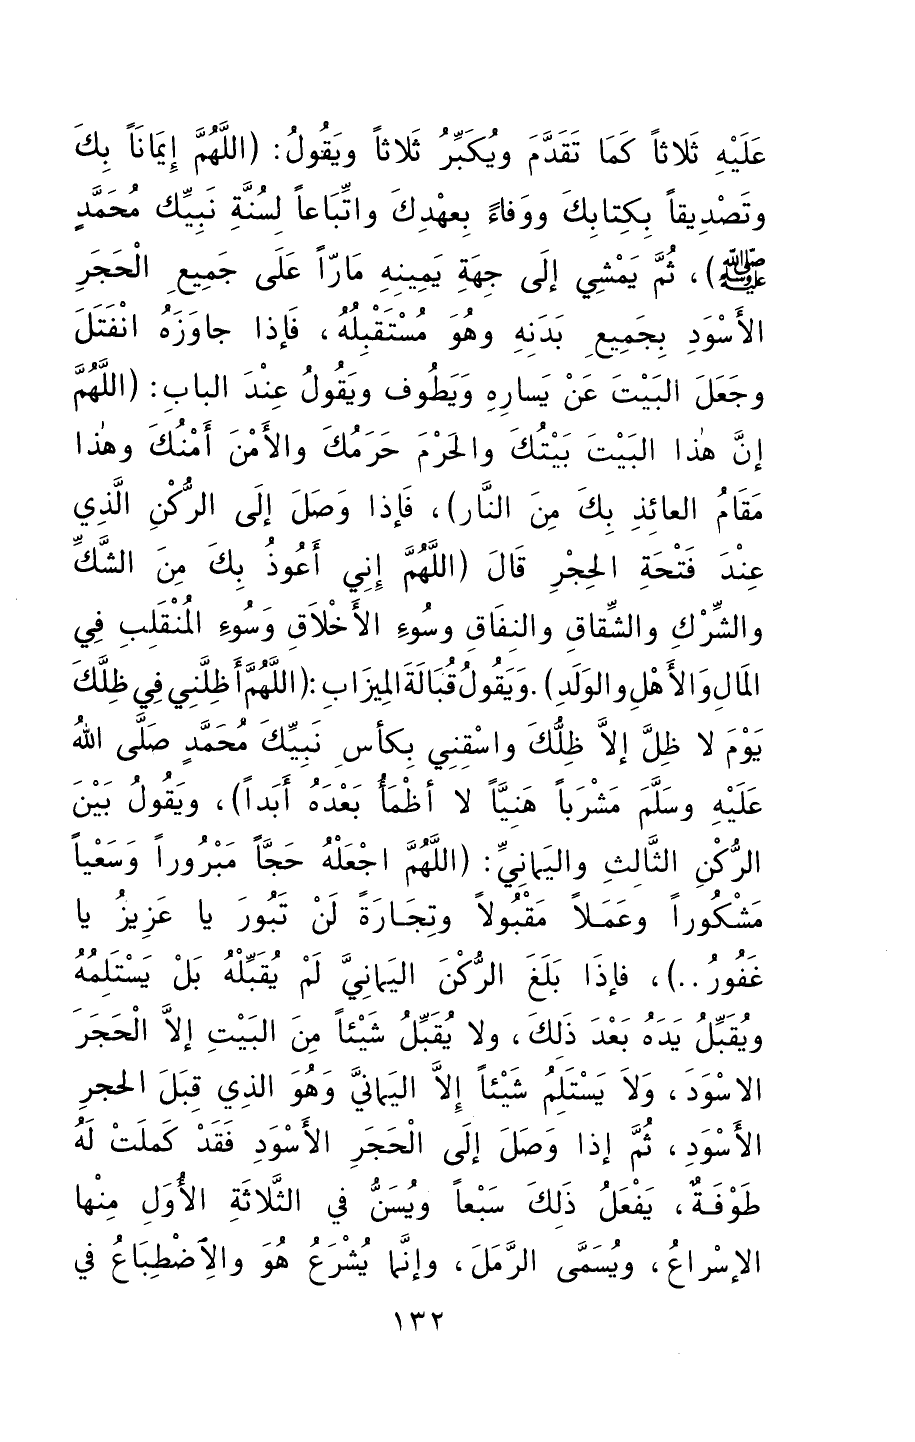 عَلَيْهِ ثَلاثاً كَمَا تَقَدَّمَ ويُكَبِّرُ ثَلاثاً ويَقُولُ: (اللَّهُمَّ إيمَانَاً بِكَ
وتَصْدِيقاً بِكِتابِكَ ووَفاءً بِعهْدِكَ واتِّبَاعاً لِسُنَّةِ نَبِيِّكَ مُحَمَّدٍ
ﷺ)، ثُمَّ يَمْشِي إلَى جِهَةِ يَمِينِهِ مَارّاً عَلَى جَمِيعِ الْحَجَرِ
الأَسْوَدِ بِجَمِيعِ بَدَنِهِ وهُوَ مُسْتَقْبِلُهُ، فَإذا جاوَزَهُ انْفَتَلَ
وجَعَلَ البَيْتَ عَنْ يَسارِهِ وَيَطُوف ويَقُولُ عِنْدَ البابِ: (اللَّهُمَّ
إنَّ هٰذا البَيْتَ بَيْتُكَ والحَرْمَ حَرَمُكَ والأَمْنَ أَمْنُكَ وهٰذا
مَقَامُ العائِذِ بِكَ مِنَ النَّار)، فَإذا وَصَلَ إلَى الرُّكْنِ الَّذِي
عِنْدَ فَتْحَةِ الحِجْرِ قَالَ (اللَّهُمَّ إِنِي أَعُوذُ بِكَ مِنَ الشَّكِّ
والشِّرْكِ والشِّقاقِ والنِفَاقِ وسُوءِ الأَخْلَاقِ وَسُوءِ المُنْقَلِبِ فِي
المَالِ وَالأَهْلِ والوَلَدِ). وَيَقُولُ قُبَالَةَ المِيزَابِ: (اللَّهُمَّ أَظِلَّنِي فِي ظِلِّكَ
يَوْمَ لا ظِلَّ إلاَّ ظِلُّكَ واسْقِنِي بِكأسِ نَبِيِّكَ مُحَمَّدٍ صَلَّى اللهُ
عَلَيْهِ وسَلَّمَ مَشْرَباً هَنِيَّاً لا أظْمَأُ بَعْدَهُ أَبَداً)، ويَقُولُ بَيْنَ
الرُّكْنِ الثَّالِثِ واليَمانِيِّ: (اللَّهُمَّ اجْعَلْهُ حَجَّاً مَبْرُوراً وَسَعْياً
مَشْكُوراً وعَمَلاً مَقْبُولاً وتِجَارَةً لَنْ تَبُورَ يا عَزِيزُ يا
غَفُورُ..)، فإذَا بَلَغَ الرُّكْنَ اليَمانِيَّ لَمْ يُقَبِّلْهُ بَلْ يَسْتَلِمُهُ
ويُقَبِّلُ يَدَهُ بَعْدَ ذَلِكَ، ولا يُقَبِّلُ شَيْئاً مِنَ البَيْتِ إلاَّ الْحَجَرَ
الاسْوَدَ، وَلاَ يَسْتَلِمُ شَيْئاً إِلاَّ اليَمانِيَّ وَهُوَ الذِي قِبَلَ الحجرِ
الأَسْوَدِ، ثُمَّ إذا وَصَلَ إلَى الْحَجَرِ الأَسْوَدِ فَقَدْ كَمِلَتْ لَهُ
طَوْفَةٌ، يَفْعَلُ ذَلِكَ سَبْعاً ويُسَنُّ فِي الثَّلاثَةِ الأُوَلِ مِنْها
الإسْراعُ، ويُسَمَّى الرَّمَلَ، وإنَّما يُشْرَعُ هُوَ والإِضْطِبَاعُ فِي
١٣٢